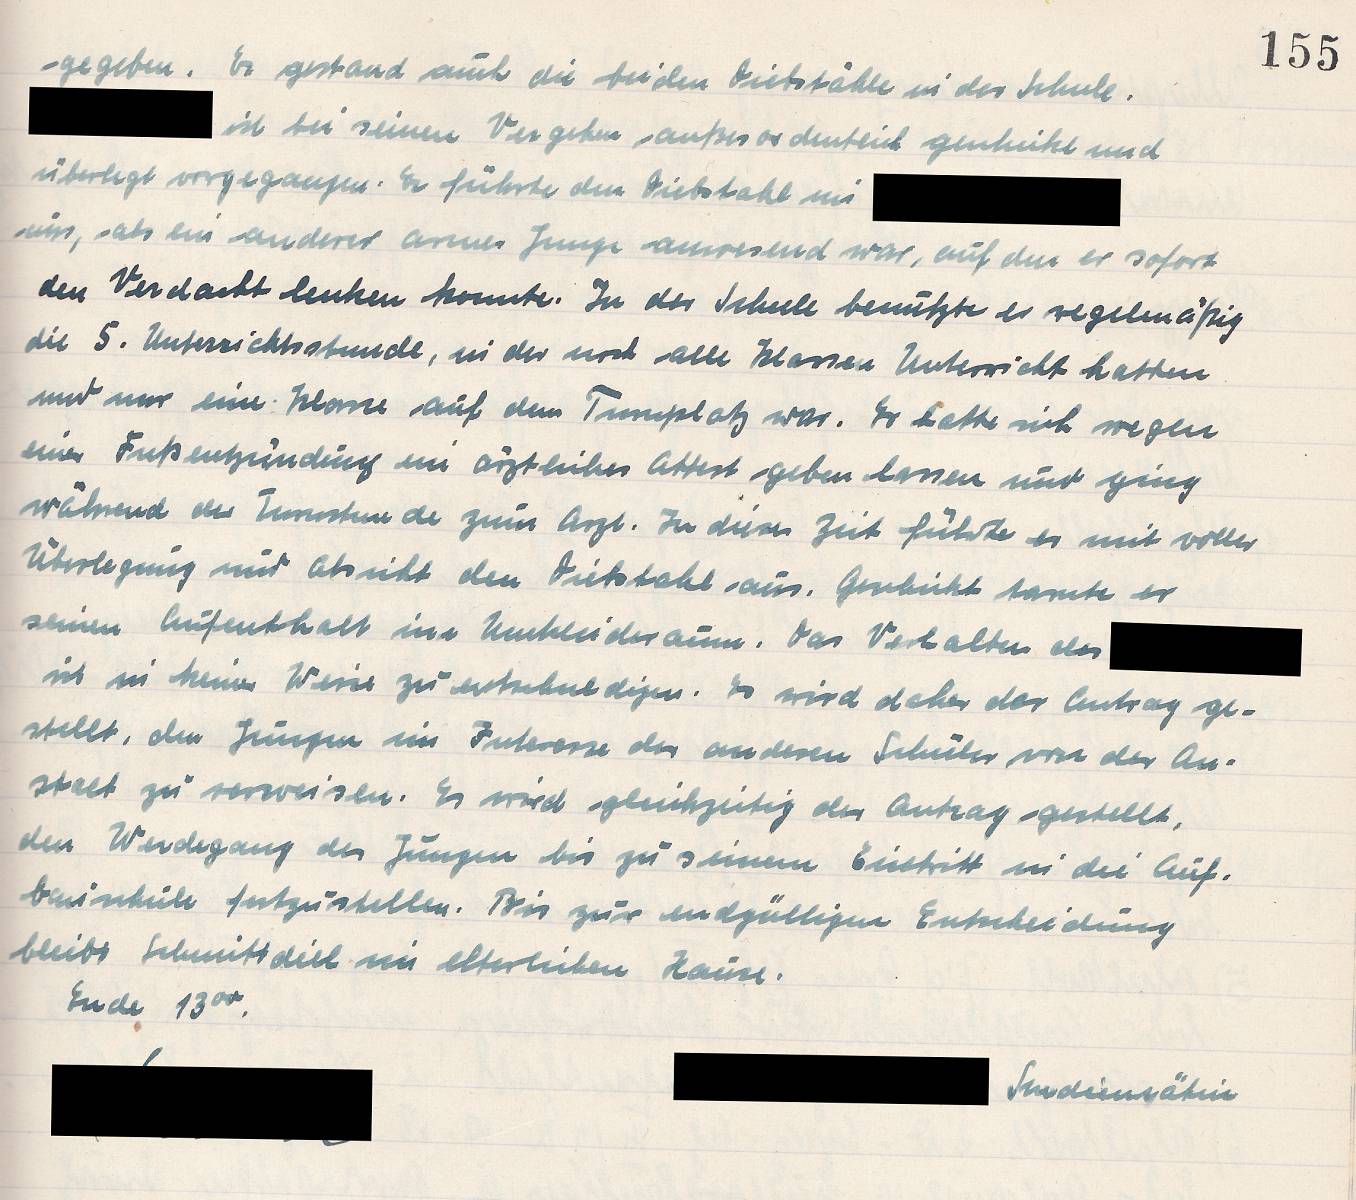 155
gegeben. Er gestand auch die beiden Diebstähle in der Schule.
ist bei seinen Vergehen außerordentlich geschickt und
überlegt vorgegangen. Er führte den Diebstahl im
aus, als ein anderer armer Junge anwesend war, auf den er sofort
den Verdacht lenken konnte. In der Schule benützte er regelmäßig
die 5. Unterrichtsstunde, in der noch alle Klassen Unterricht hatten
und nur eine Klasse auf dem Turnplatz war. Er hatte sich wegen
einer Fußentzündung ein ärztliches Attest geben lassen und ging
während der Turnstunde zum Arzt. In dieser Zeit führte er mit voller
Überlegung und Absicht den Diebstahl aus. Geschickt tarnte er
seinen Aufenthalt im Umkleideraum. Das Verhalten des
ist in keiner Weise zu entschuldigen. Es wird daher der Antrag ge-
stellt, den Jungen im Interesse der anderen Schüler von der An-
stalt zu verweisen. Es wird gleichzeitig der Antrag gestellt,
den Werdegang des Jungen bis zu seinem Eintritt in die Auf-
bauschule festzustellen. Bis zur endgültigen Entscheidung
bleibt Schmittdiel im elterlichen Hause.
Ende 13⁰⁰.
Studienrätin